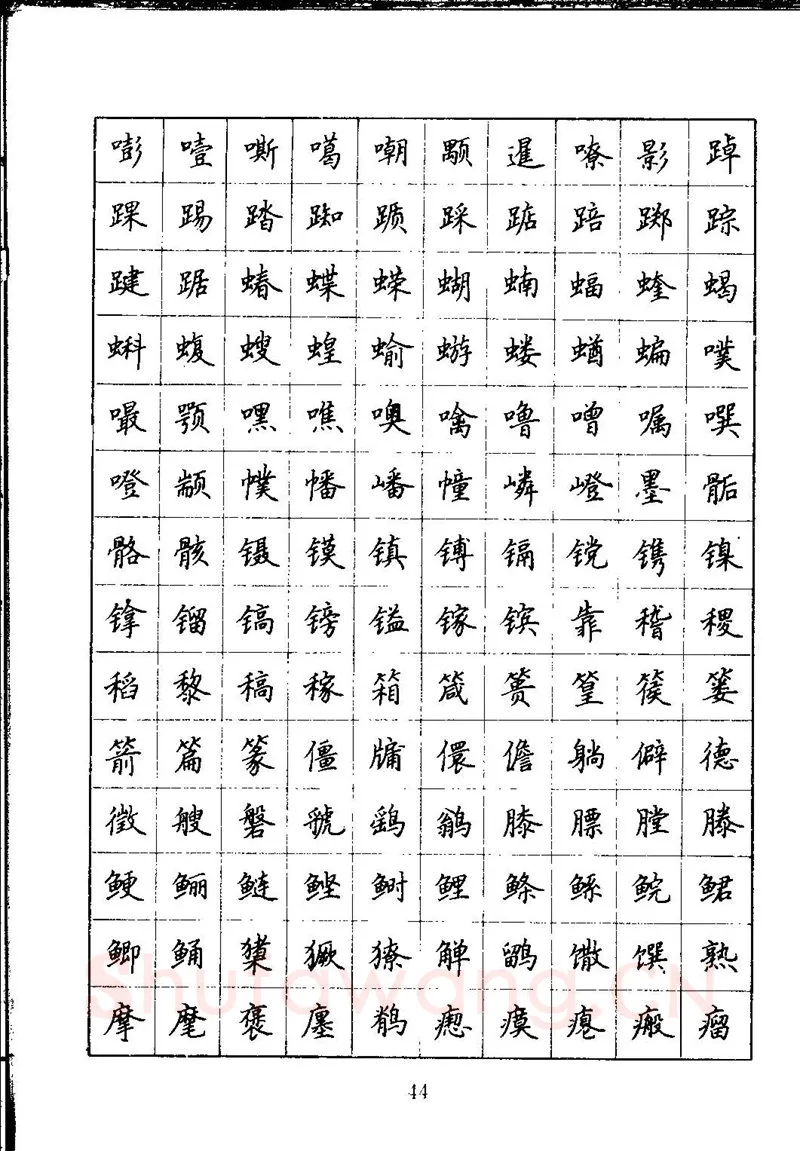 嘭噎嘶噶嘲颙暹嘹影踔
踝踢踏踟踬踩踮踣踯踪
踺踞蝽蝶蝾蝴蝻蝠蝰蝎
蝌蝮螋蝗蝓蝣蝼蝤蝙噗
嘬颚嘿噍噢噙噜噌嘱噀
噔颛幞幡嶓幢嶙嶝墨骺
骼骸镊镆镇镈镉镋镌镍
镎镏镐镑镒镓镔靠稽稷
稻黎稿稼箱箴篑篁篌篓
箭篇篆僵牖儇儋躺僻德
徵艘磐虢鹞鹟膝膘膛滕
鲠鲡鲢鲣鲥鲤鲦鲧鲩鲪
鲫鲬獒獗獠觯鹠馓馔熟
摩麾褒廛鹡瘛瘼瘪瘢瘤
Shufawang.CN
44